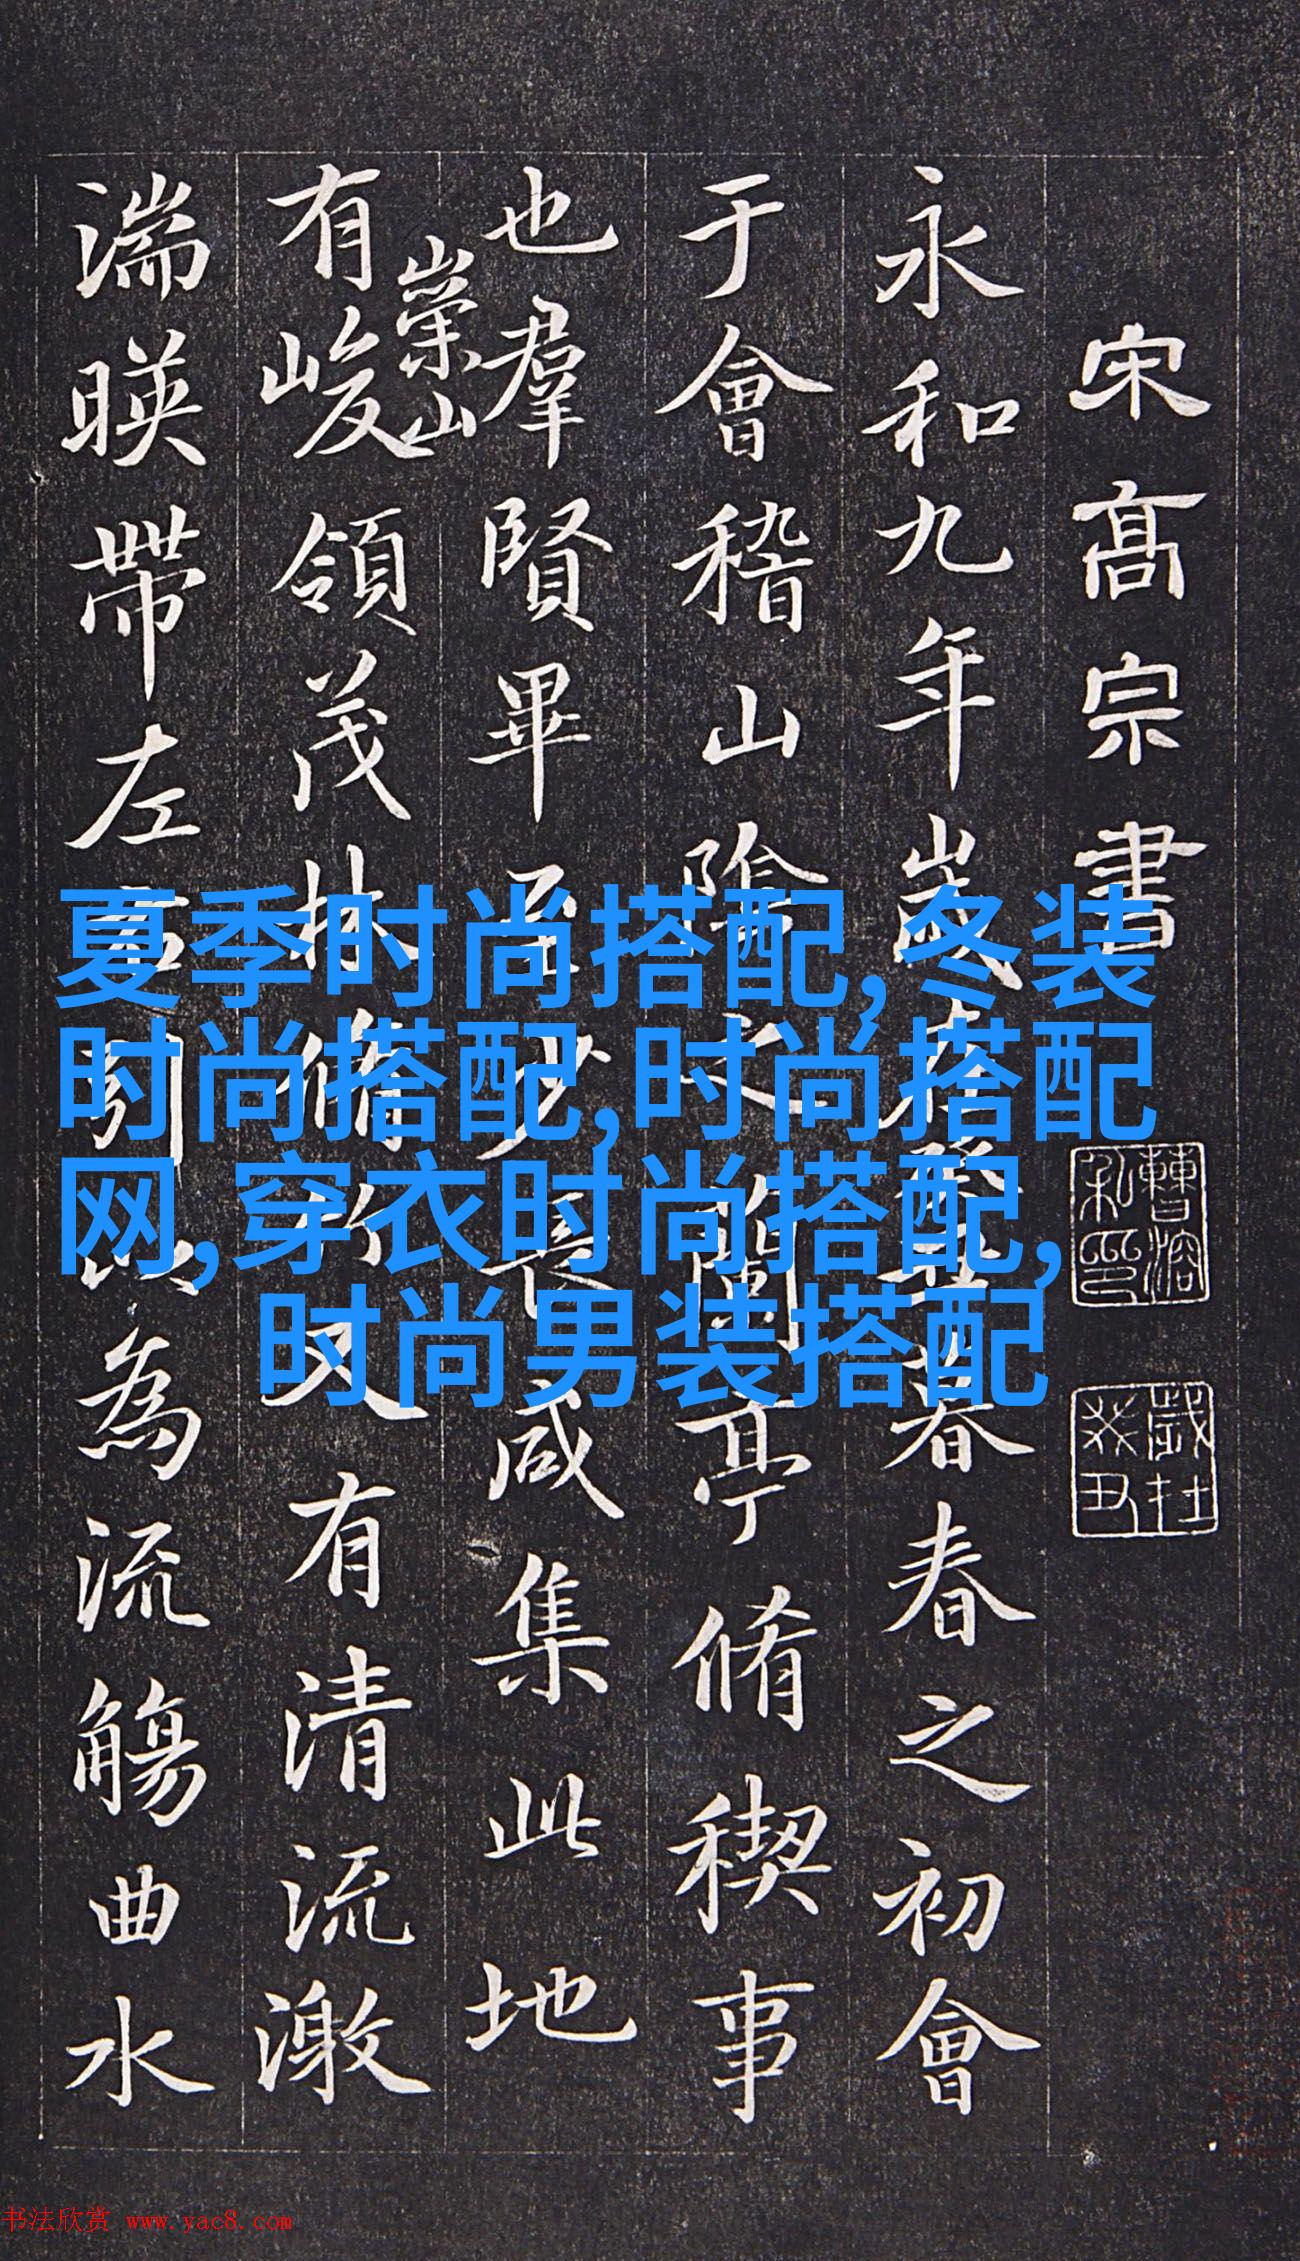 宋高宗書
永和九年歲在癸丑暮春春之初會
于會稽山陰之蘭亭脩稧事
也羣賢畢至少長咸集此地
崇山
有峻領茂林脩竹又有清流激
湍暎帶左右引以為流觴曲水
曹溶私印
歲在癸丑
夏季时尚搭配,冬装
时尚搭配,时尚搭配
网,穿衣时尚搭配,
时尚男装搭配
书法欣赏 www.yac8.com